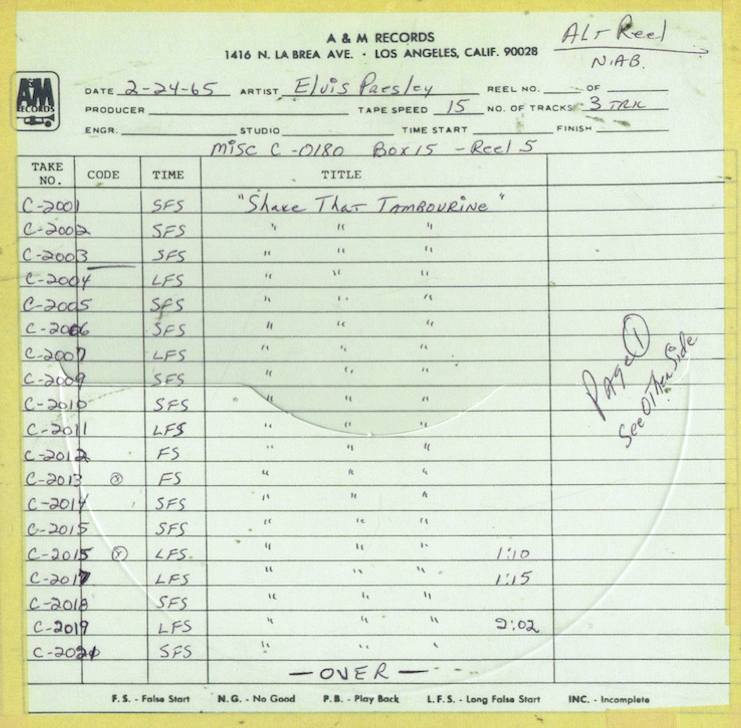 A & M RECORDS
1416 N. LA BREA AVE. · LOS ANGELES, CALIF. 90028
Alt Reel
N.A.B.
A&M RECORDS
DATE 2-24-65 ARTIST Elvis Presley REEL NO. OF
PRODUCER TAPE SPEED 15 NO. OF TRACKS 3 TRK
ENGR. STUDIO TIME START FINISH
MISC C-0180 Box 15 - Reel 5
TAKE NO. CODE TIME TITLE
C-2001 SFS "Shake That TAMBOURINE"
C-2002 SFS " " "
C-2003 SFS " " "
C-2004 LFS " " "
C-2005 SFS " " "
C-2006 SFS " " "
C-2007 LFS " " "
C-2009 SFS " " "
C-2010 SFS " " "
C-2011 LFS " " "
C-2012 FS " " "
C-2013 ⓧ FS " " "
C-2014 SFS " " "
C-2015 SFS " " "
C-2015 ⓧ LFS. " " " 1:10
C-2017 LFS " " " 1:15
C-2018 SFS " " "
C-2019 LFS " " " 2:02
C-2020 SFS " " "
Page 1
See Other Side
— OVER —
F.S. - False Start N.G. - No Good P.B. - Play Back L.F.S. - Long False Start INC. - Incomplete